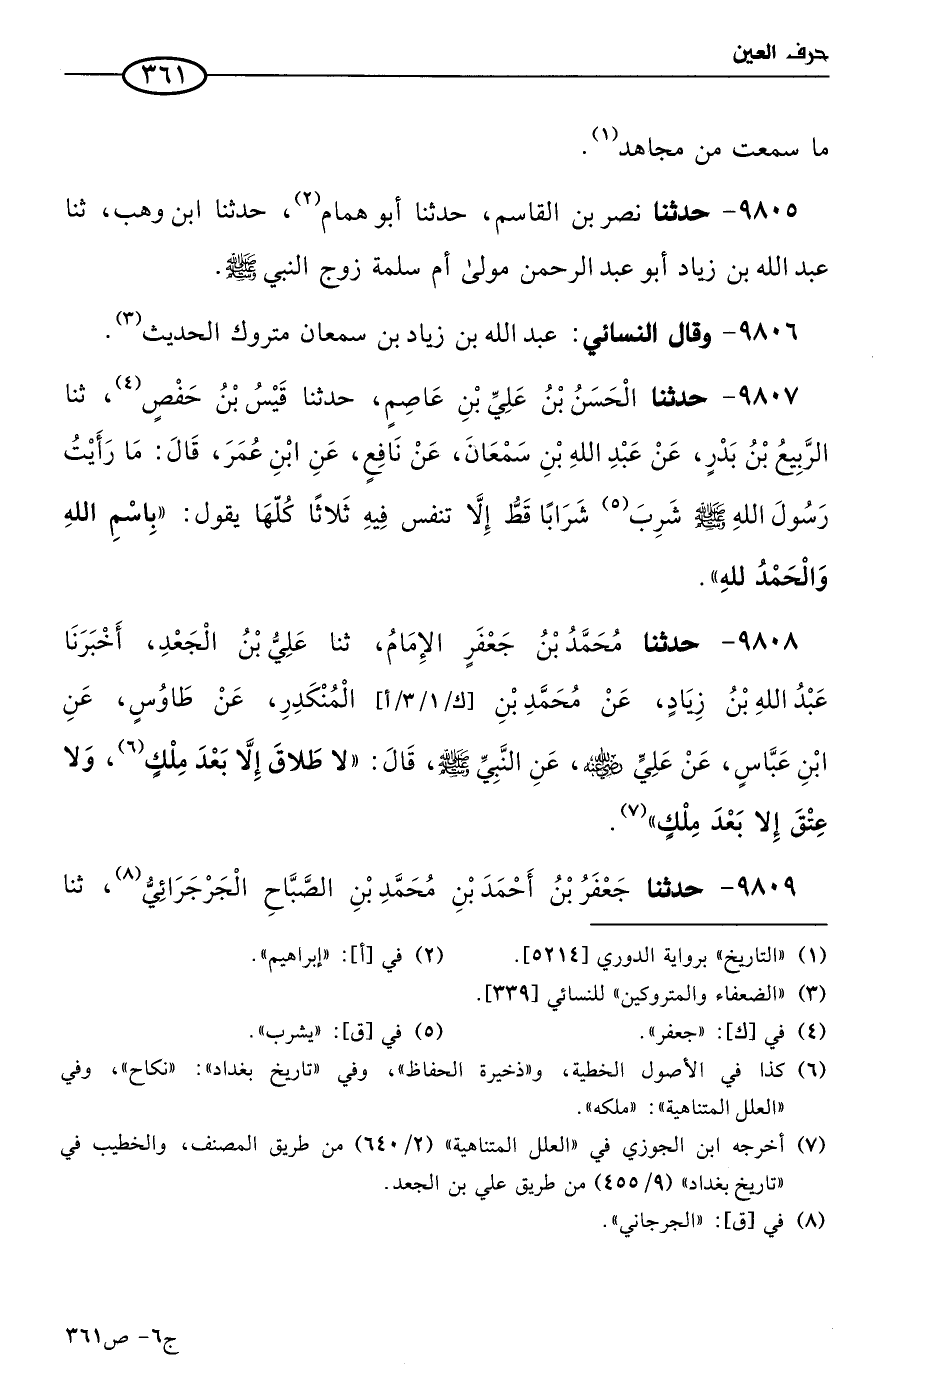 حرف العين
٣٦١
ما سمعت من مجاهد(١).
٩٨٠٥- حدثنا نصر بن القاسم، حدثنا أبو همام(٢)، حدثنا ابن وهب، ثنا
عبد الله بن زياد أبو عبد الرحمن مولىٰ أم سلمة زوج النبي ﷺ.
٩٨٠٦- وقال النسائي: عبد الله بن زياد بن سمعان متروك الحديث(٣).
٩٨٠٧- حدثنا الْحَسَنُ بْنُ عَلِيِّ بْنِ عَاصِمٍ، حدثنا قَيْسُ بْنُ حَفْصٍ(٤)، ثنا
الرَّبِيعُ بْنُ بَدْرٍ، عَنْ عَبْدِ اللهِ بْنِ سَمْعَانَ، عَنْ نَافِعٍ، عَنِ ابْنِ عُمَرَ، قَالَ: مَا رَأَيْتُ
رَسُولَ اللهِ ﷺ شَرِبَ(٥) شَرَابًا قَطُّ إِلَّا تنفس فِيهِ ثَلاثًا كُلّهَا يقول: «بِاسْمِ اللهِ
وَالْحَمْدُ للهِ».
٩٨٠٨- حدثنا مُحَمَّدُ بْنُ جَعْفَرٍ الإِمَامُ، ثنا عَلِيُّ بْنُ الْجَعْدِ، أَخْبَرَنَا
عَبْدُ اللهِ بْنُ زِيَادٍ، عَنْ مُحَمَّدِ بْنِ [ك/٣/١/أ] الْمُنْكَدِرِ، عَنْ طَاوُسٍ، عَنِ
ابْنِ عَبَّاسٍ، عَنْ عَلِيٍّ رضي الله عنه، عَنِ النَّبِيِّ ﷺ، قَالَ: «لا طَلاقَ إِلَّا بَعْدَ مِلْكٍ(٦)، وَلا
عِتْقَ إِلا بَعْدَ مِلْكٍ»(٧).
٩٨٠٩- حدثنا جَعْفَرُ بْنُ أَحْمَدَ بْنِ مُحَمَّدِ بْنِ الصَّبَّاحِ الْجَرْجَرَائِيُّ(٨)، ثنا
(١) «التاريخ» برواية الدوري [٥٢١٤]. (٢) في [أ]: «إبراهيم».
(٣) «الضعفاء والمتروكين» للنسائي [٣٣٩].
(٤) في [ك]: «جعفر». (٥) في [ق]: «يشرب».
(٦) كذا في الأصول الخطية، و«ذخيرة الحفاظ»، وفي «تاريخ بغداد»: «نكاح»، وفي
«العلل المتناهية»: «ملكه».
(٧) أخرجه ابن الجوزي في «العلل المتناهية» (٢/ ٦٤٠) من طريق المصنف، والخطيب في
«تاريخ بغداد» (٩/ ٤٥٥) من طريق علي بن الجعد.
(٨) في [ق]: «الجرجاني».
ج٦- ص٣٦١